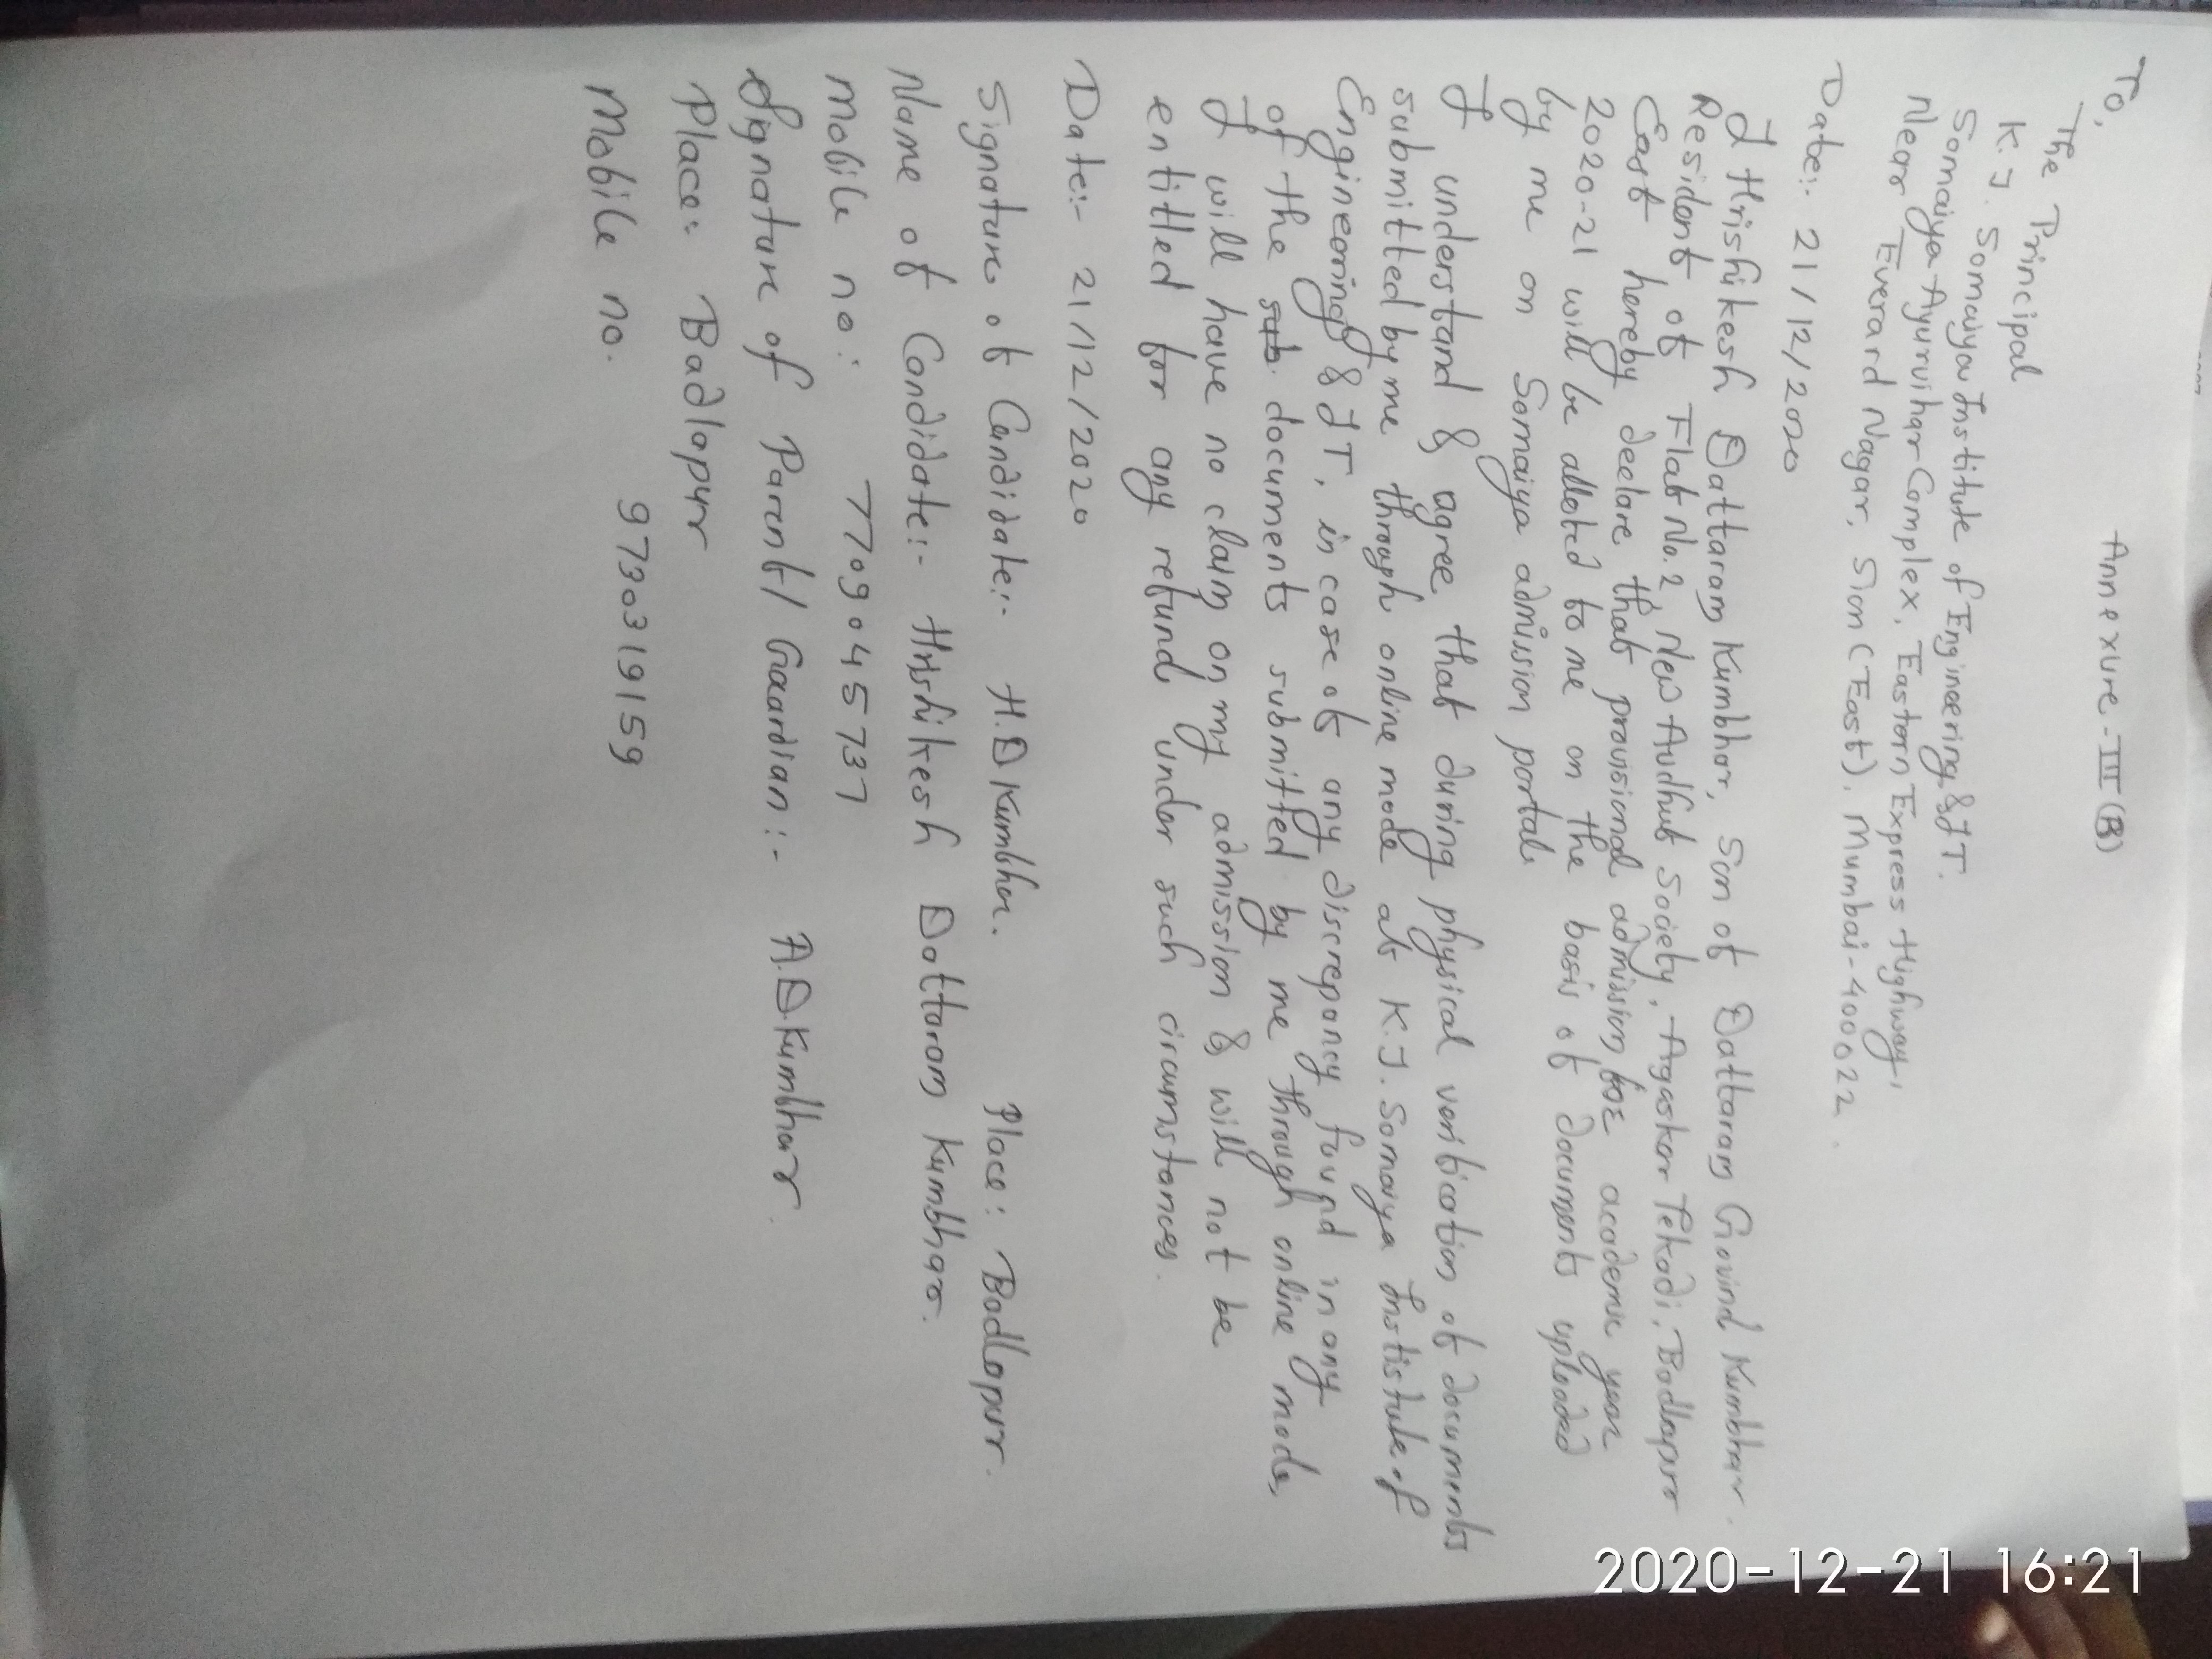 Annexure-III(B)
To,
The Principal
K.J. Somaiya Institute of Engineering & IT.
Somaiya Ayurvihar Complex, Eastern Express Highway,
Near Everard Nagar, Sion (East), Mumbai-400022.
Date:- 21/12/2020
I Hrishikesh Dattaram Kumbhar, Son of Dattaram Govind Kumbhar.
Resident of Flat No.2, New Audhut Society, Agaskar Tekadi, Badlapur
East hereby declare that provisional admission for academic year
2020-21 will be alloted to me on the basis of documents uploaded
by me on Somaiya admission portal.
I understand & agree that during physical verification of documents
submitted by me through online mode at K.J. Somaiya Institstute of
Engineering & IT, in case of any discrepancy found in any
of the documents submitted by me through online mode,
I will have no claim on my admission & will not be
entitled for any refund under such circumstances.
Date:- 21/12/2020
Signature of Candidate:- H.D Kumbhar. Place: Badlapur.
Name of Candidate:- Hrishikesh Dattaram Kumbhar.
Mobile no: 7709045737
Signature of Parent/Gaurdian:- A.D.Kumbhar.
Place: Badlapur
Mobile no. 9730319159
2020-12-21 16:21